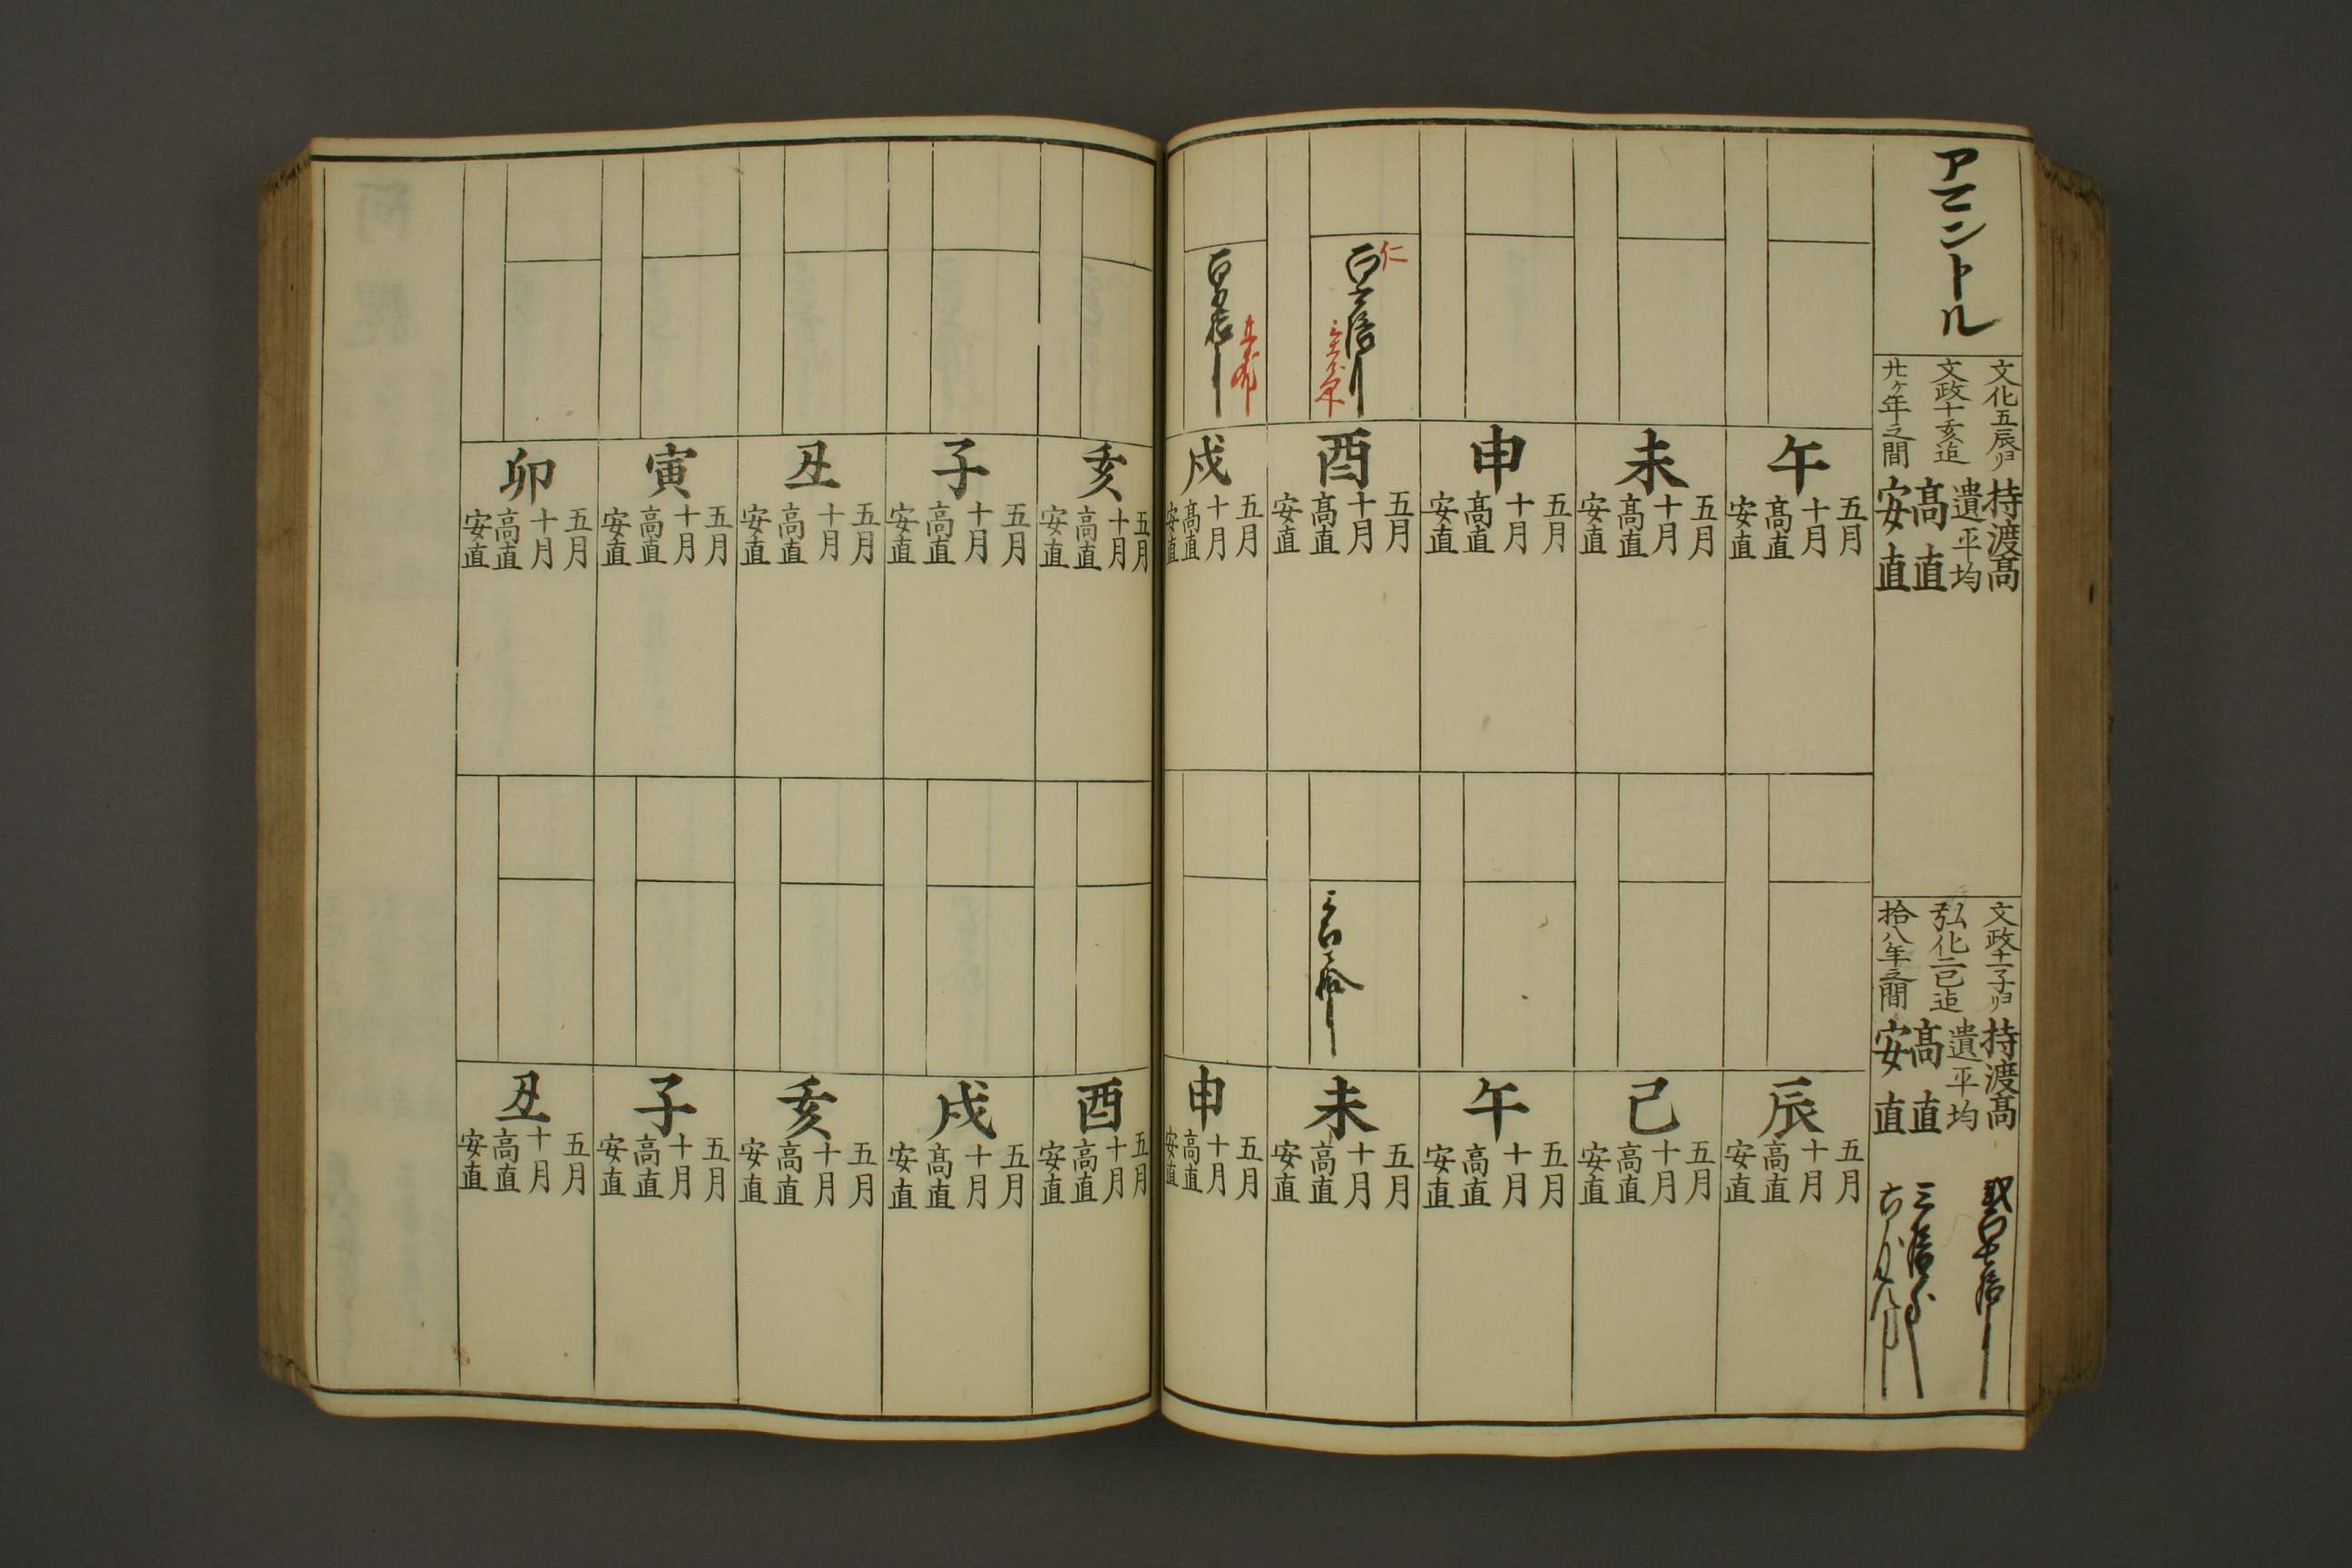 アマントル
文化五辰ヨリ
文政十亥迄
廿ケ年之間
持渡高
遺平均
高直
安直
文政十一子ヨリ
弘化二巳迄
拾八年之間
持渡高
遺平均
高直
安直
午
五月
十月
高直
安直
未
五月
十月
高直
安直
申
五月
十月
高直
安直
仁
酉
五月
十月
高直
安直
戌
五月
十月
高直
安直
亥
五月
十月
高直
安直
子
五月
十月
高直
安直
丑
五月
十月
高直
安直
寅
五月
十月
高直
安直
卯
五月
十月
高直
安直
辰
五月
十月
高直
安直
巳
五月
十月
高直
安直
午
五月
十月
高直
安直
未
五月
十月
高直
安直
申
五月
十月
高直
安直
酉
五月
十月
高直
安直
戌
五月
十月
高直
安直
亥
五月
十月
高直
安直
子
五月
十月
高直
安直
丑
五月
十月
高直
安直